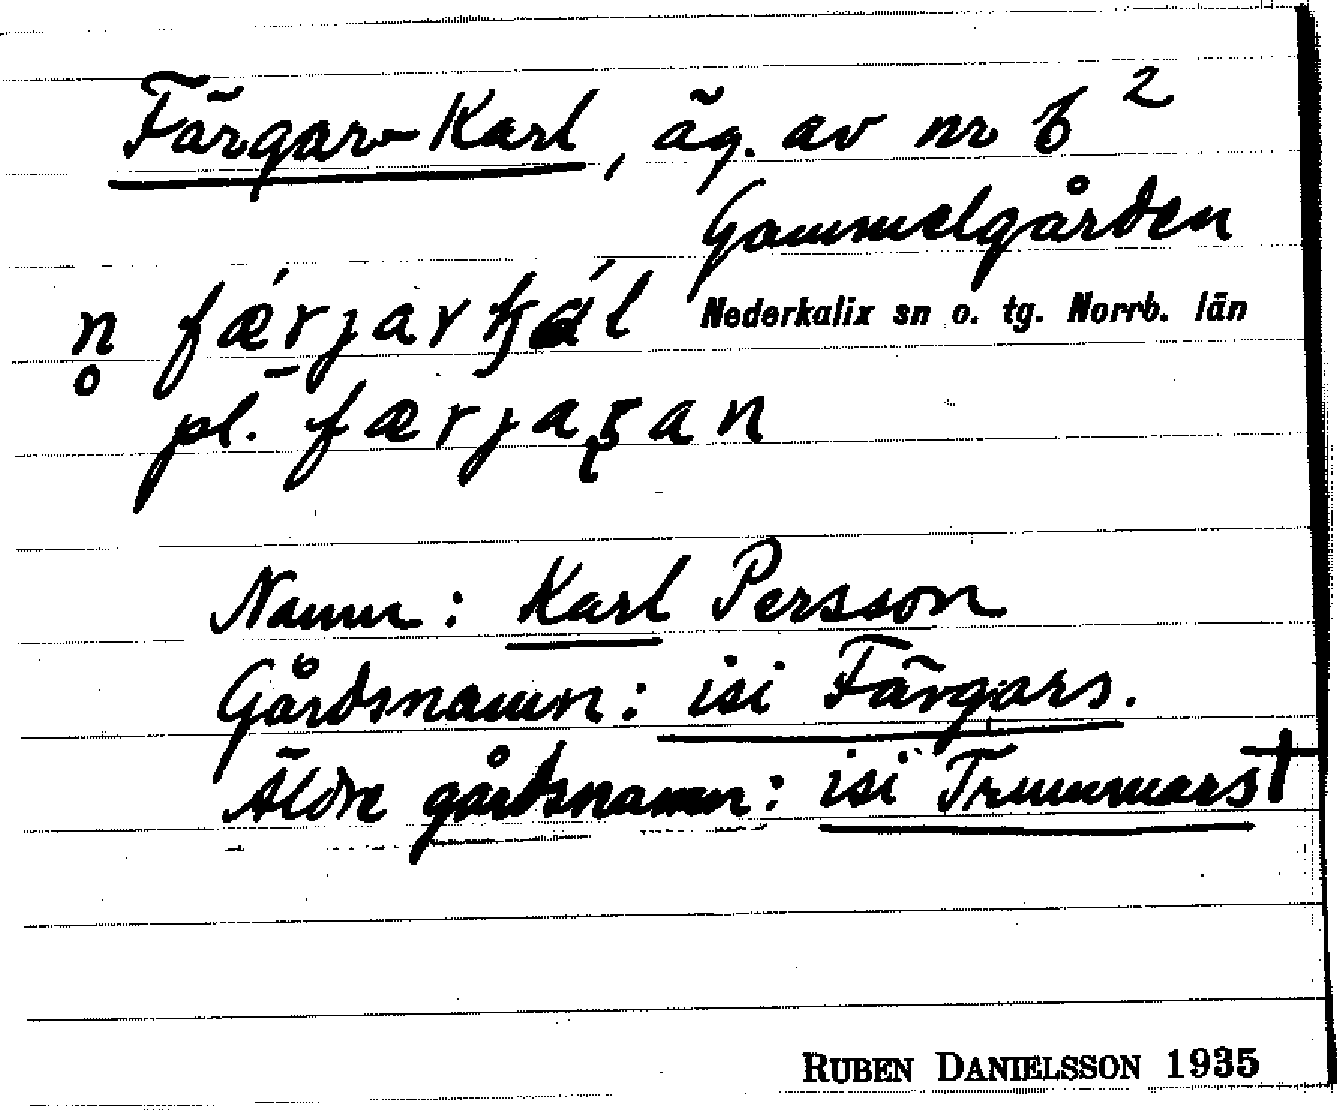 Färgar-Karl, äg. av nr 6²
Gammelgården
Nederkalix sn o. tg. Norrb. län
n̥ fǽrjarkál
pl. færjaṛan
Namn: Karl Persson
Gårdsnamn: isi Färgars.
Äldre gårdsnamn: isi Trummars†
RUBEN DANIELSSON 1935